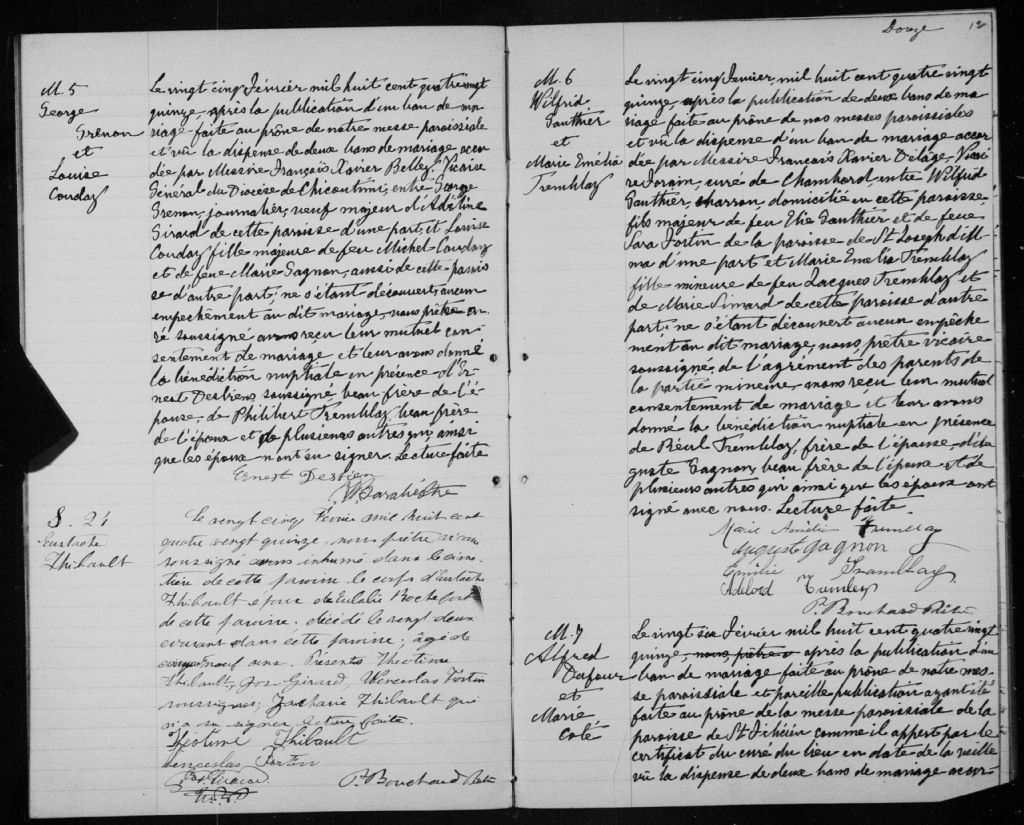 M. 5
George
Grenon
et
Louise
Couday
Le vingt cinq Février mil huit cent quatrevingt
quinze, après la publication d'un ban de ma-
riage faite au prône de notre messe paroissiale
et vû la dispense de deux bans de mariage accor
dée par Messire François Xavier Belley, Vicaire
Général du Diocèse de Chicoutimi, entre George
Grenon, journalier, veuf majeur d'Adéline
Girard de cette paroisse d'une part, et Louise
Couday fille majeure de feu Michel Couday
et de feue Marie Gagnon, aussi de cette parois
se d'autre part; ne s'étant découvert aucun
empechêment au dit mariage, nous prêtre cu-
ré soussigné avons reçu leur mutuel con
sentement de mariage et leur avons donné
la bénédiction nuptiale en présence d'Er-
nest Desbiens soussigné, beau frère de l'é-
pouse, de Philibert Tremblay beau frère
de l'époux et de plusieurs autres qui ainsi
que les époux n'ont su signer. Lecture faite
Ernest Desbien
Barabé Ptre
S. 24
Eustache
Thibault
Le vingt cinq Février mil huit cent
quatre vingt quinze, nous prêtre vicaire
soussigné avons inhumé dans le cime
tière de cette paroisse le corps d'Eustache
Thibault époux de Eulalie Rochefort
de cette paroisse, décédé le vingt deux
courant dans cette paroisse; âgé de
neuf ans. Présents Théotime
Thibault, Jos Girard, Wenceslas Fortin
soussignés; Zacharie Thibault qui
n'a su signer. Lecture faite.
Théotime Thibault
Wenceslas Fortin
P. Bouchard Ptre
Douze 12
M. 6
Wilfrid
Gauthier
et
Marie Emélia
Tremblay
Le vingt cinq Janvier, mil huit cent quatre vingt
quinze, après la publication de deux bans de ma
riage faite au prône de nos messes paroissiales
et vû la dispense d'un ban de mariage accor
dée par Messire François Xavier Delâge, Vicai
re Forain, curé de Chambord, entre Wilfrid
Gauthier, charron, domicilié en cette paroisse
fils majeur de feu Elie Gauthier et de feue
Sara Fortin de la paroisse de St Joseph d'Al-
ma d'une part et Marie Emélia Tremblay
fille mineure de feu Jacques Tremblay et
de Marie Simard de cette paroisse d'autre
part; ne s'étant découvert aucun empêche
ment au dit mariage, nous, prêtre vicaire
soussigné, de l'agrément des parents de
la partie mineure, avons reçu leur mutuel
consentement de mariage et leur avons
donné la bénédiction nuptiale en présence
de Réul Tremblay, frère de l'épouse, d'Au
guste Gagnon, beau frère de l'époux et de
plusieurs autres qui ainsi que les époux ont
signé avec nous. Lecture faite.
Marie Amélie Tremblay
Auguste Gagnon
Emilie Tramblay
Adélord Trembley
P. Bouchard Ptre
M. 7
Alfred
Dufour
et
Marie
Coté
Le vingt six Février mil huit cent quatre vingt
quinze, nous, prêtre v après la publication d'un
ban de mariage faite au prône de notre mes-
se paroissiale et pareille publication ayant été
faite au prône de la messe paroissiale de la
paroisse de St Félicien comme il appert par le
certificat du curé du lieu en date de la veille
vû la dispense de deux bans de mariage accor-